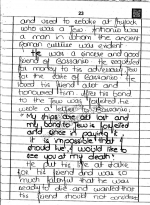 23
and used to rebuke at Shylock
who was a Jew. Antonio was
a man in whom the ancient
Roman culture was evident.
He was a sincere and good
friend of Bassanio. He requested
for money to his adversary Jew
for the sake of Bassanio. He
loved his friend a lot and
honoured him. After his bond
to the Jew was forfeited he
wrote a letter to Bassanio,
"My ships are all lost and
my bond to Jew is forfeited
and since in paying it,
it is impossible that I
should live, I would like to
see you at my death."
He did his all at stake
for his friend and was
ready to die and wanted that
his friend should not